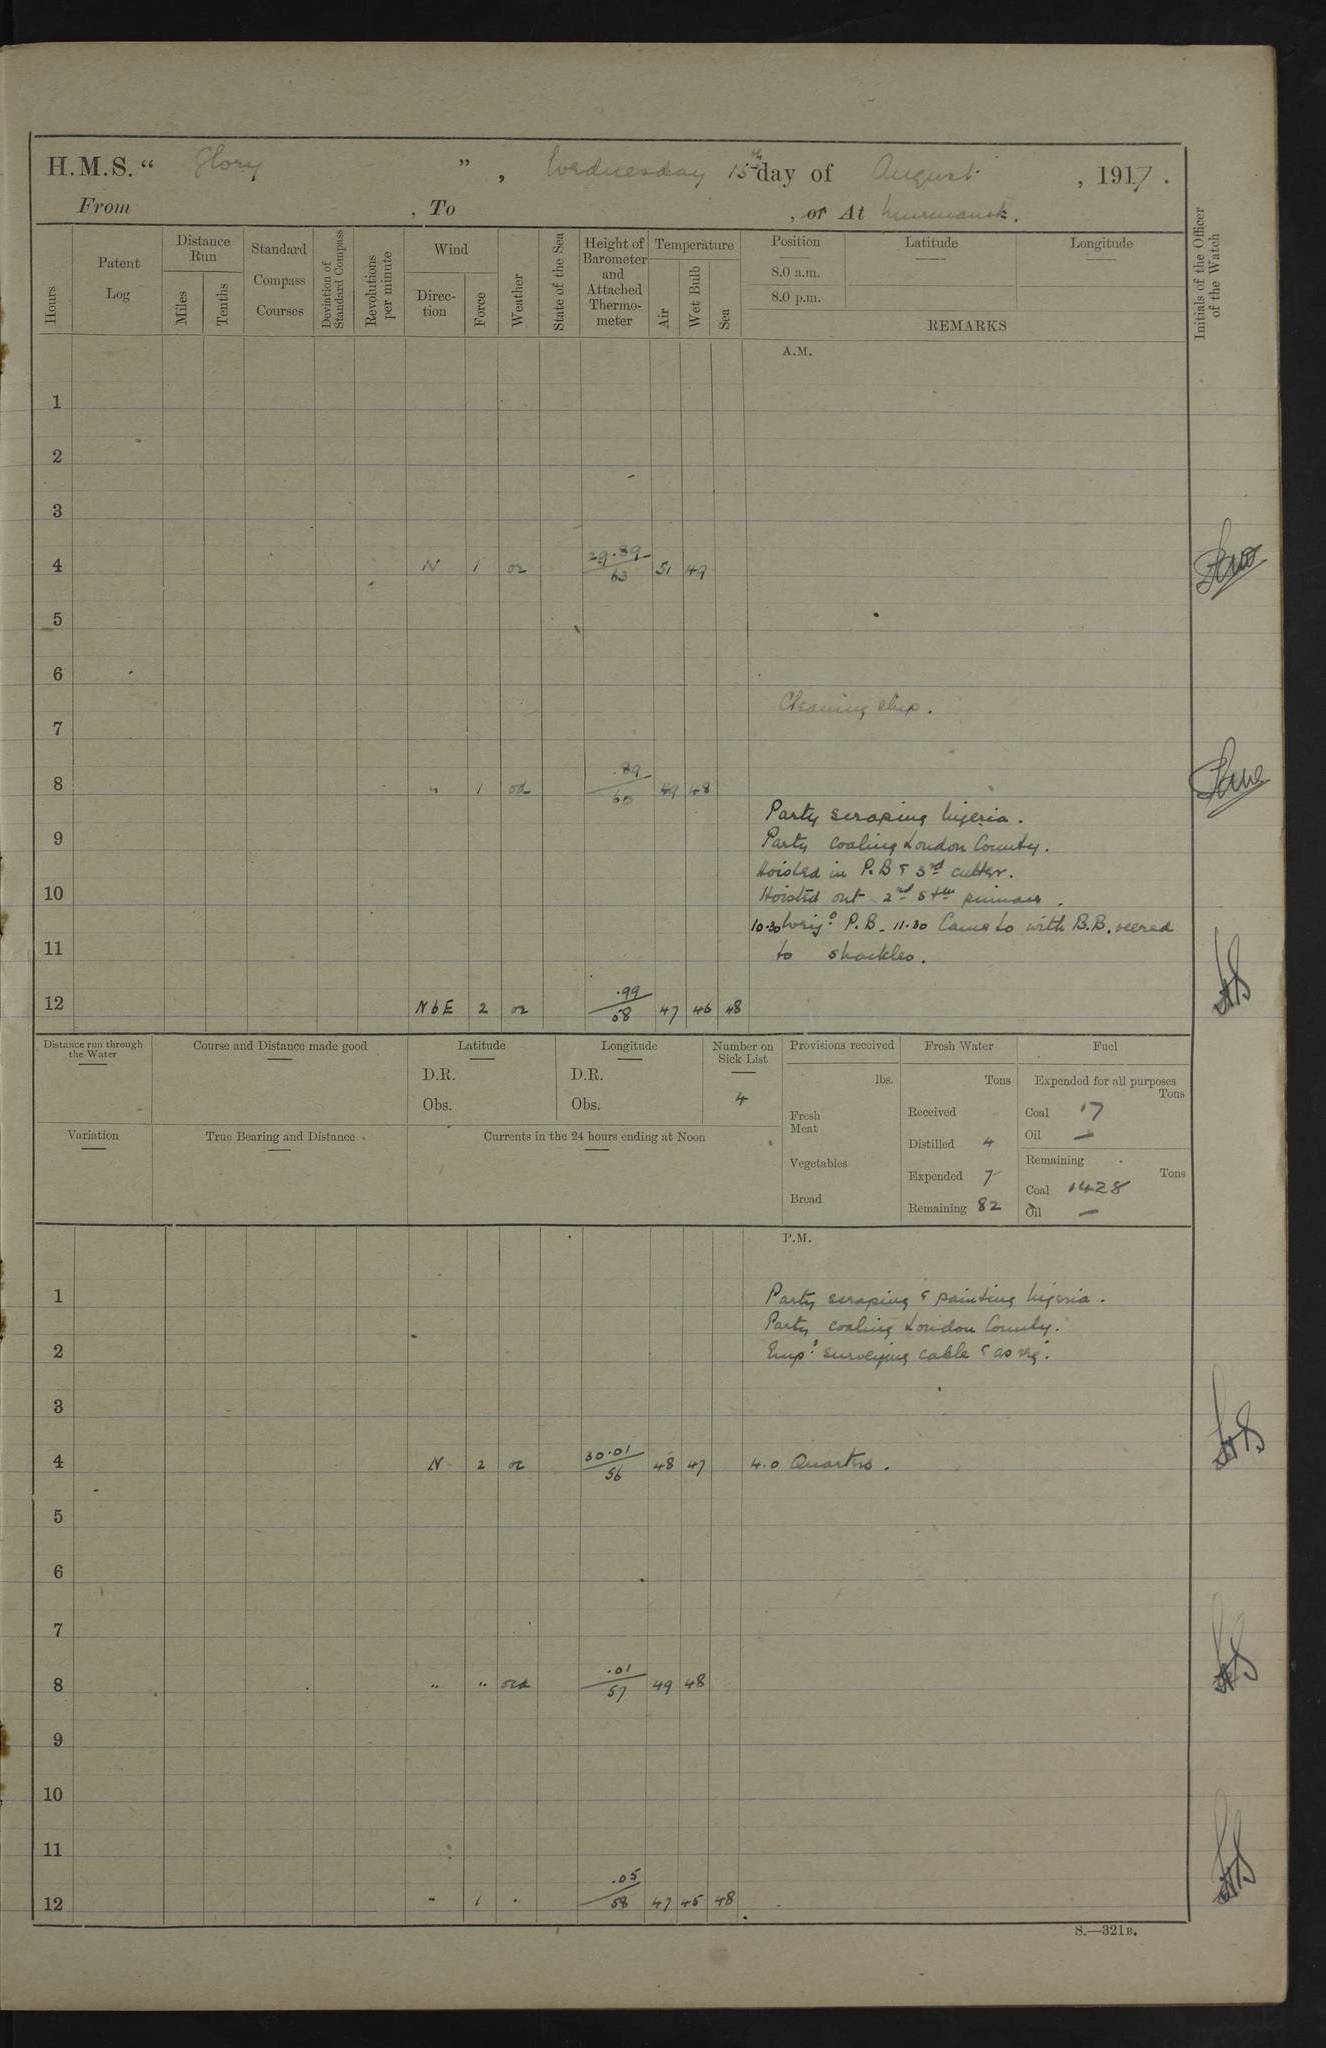 H.M.S. “ Glory ” , Wednesday 15th day of August , 1917 .
From , To , or At Murmansk.
Hours
Patent Log
Distance Run
Miles
Tenths
Standard Compass Courses
Deviation of Standard Compass
Revolutions per minute
Wind
Direc-tion
Force
Weather
State of the Sea
Height of Barometer and Attached Thermo-meter
Temperature
Air
Wet Bulb
Sea
Position
8.0 a.m.
8.0 p.m.
Latitude
Longitude
REMARKS
Initials of the Officer of the Watch
A.M.
1
2
3
4 N 1 oc 29.89/63 51 49
5
6
Cleaning ship.
7
8 " 1 od .89/60 49 48
Party scraping Nigeria.
9 Party coaling London County.
Hoisted in P.B & 3rd cutter.
10 Hoisted out 2nd stm pinnace.
10.30 Weigd P.B. 11.30 Came to with B.B. veered
11 to shackles.
12 N b E 2 oc .99/58 47 46 48
Distance run through the Water
Course and Distance made good
Latitude
D.R.
Obs.
Longitude
D.R.
Obs.
Number on Sick List
4
Provisions received
lbs.
Fresh Meat
Vegetables
Bread
Fresh Water
Tons
Received
Distilled 4
Expended 7
Remaining 82
Fuel
Expended for all purposes
Tons
Coal 17
Oil —
Remaining
Tons
Coal 1428
Oil —
Variation
True Bearing and Distance
Currents in the 24 hours ending at Noon
P.M.
1 Party scraping & painting Nigeria.
Party coaling London County.
2 Empd surveying cable & as req.
3
4 N 2 oc 30.01/56 48 47 4.0 Quarters.
5
6
7
8 " " ocd .01/57 49 48
9
10
11
12 " 1 " .05/58 47 45 48
S.—321B.